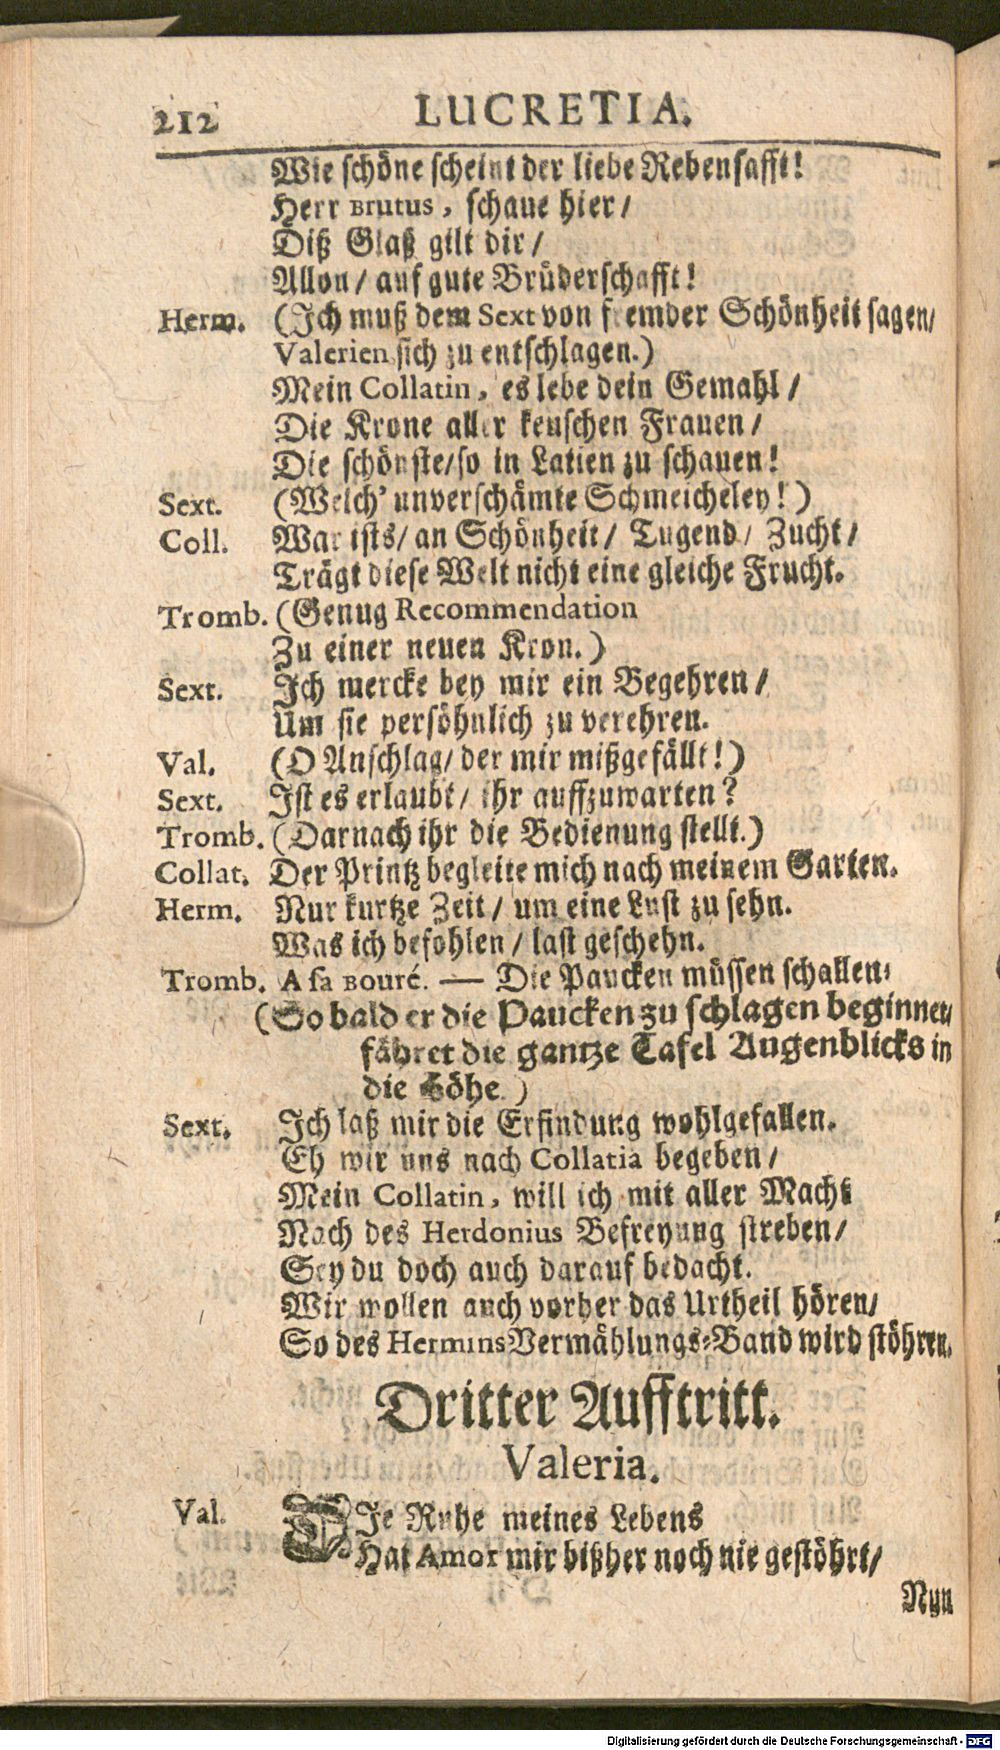 212 LUCRETIA.
Wie schöne scheint der liebe Rebensafft!
Herr Brutus, schaue hier/
Diß Glaß gilt dir/
Allon/ auf gute Brüderschafft!
Herm. (Ich muß dem Sext von fremder Schönheit sagen/
Valerien sich zu entschlagen.)
Mein Collatin, es lebe dein Gemahl/
Die Krone aller keuschen Frauen/
Die schönste/so in Latien zu schauen!
Sext. (Welch' unverschämte Schmeicheley!)
Coll. War ists/ an Schönheit/ Tugend/ Zucht/
Trägt diese Welt nicht eine gleiche Frucht.
Tromb. (Genug Recommendation
Zu einer neuen Kron.)
Sext. Ich mercke bey mir ein Begehren/
Um sie persöhnlich zu verehren.
Val. (O Anschlag/ der mir mißgefällt!)
Sext. Ist es erlaubt/ ihr auffzuwarten?
Tromb. (Darnach ihr die Bedienung stellt.)
Collat. Der Printz begleite mich nach meinem Garten.
Herm. Nur kurtze Zeit/ um eine Lust zu sehn.
Was ich befohlen/ last geschehn.
Tromb. A sa Bouré. — Die Paucken müssen schallen:
(So bald er die Paucken zu schlagen beginnet/
fähret die gantze Tafel Augenblicks in
die Höhe.)
Sext. Ich laß mir die Erfindung wohlgefallen.
Eh wir uns nach Collatia begeben/
Mein Collatin, will ich mit aller Macht
Nach des Herdonius Befreyung streben/
Sey du doch auch darauf bedacht.
Wir wollen auch vorher das Urtheil hören/
So des Hermins Vermählungs-Band wird stöhren.
Dritter Aufftritt.
Valeria.
Val. DIe Ruhe meines Lebens
Hat Amor mir bißher noch nie gestöhrt/
Nun
Digitalisierung gefördert durch die Deutsche Forschungsgemeinschaft - DFG